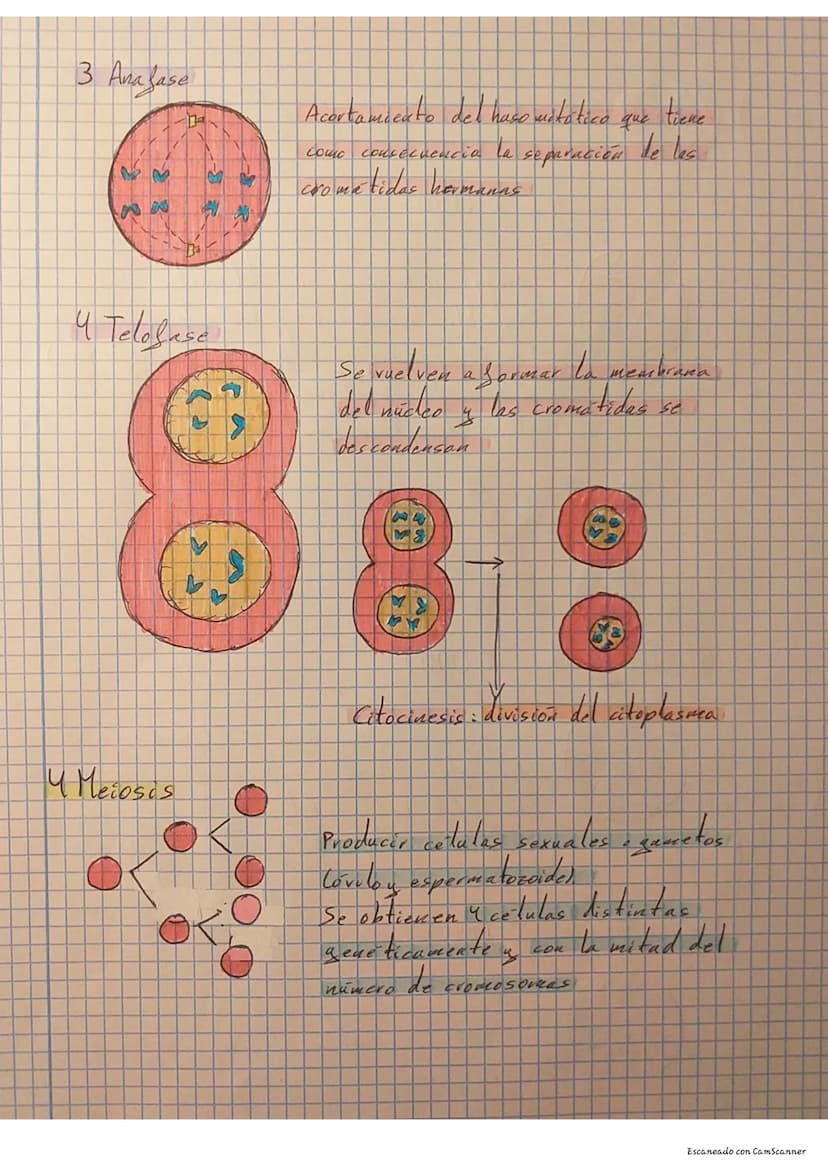 3 Anafase
Acortamiento del haso mitótico que tiene
como consecuencia la separación de las
cromátidas hermanas
4 Telofase
Se vuelven a formar la membrana
del núcleo y las cromátidas se
descondensan
Citocinesis: división del citoplasma
4 Meiosis
Producir células sexuales o gametos
(óvulo y espermatozoide)
Se obtienen 4 células distintas
genéticamente y con la mitad del
número de cromosomas
Escaneado con CamScanner